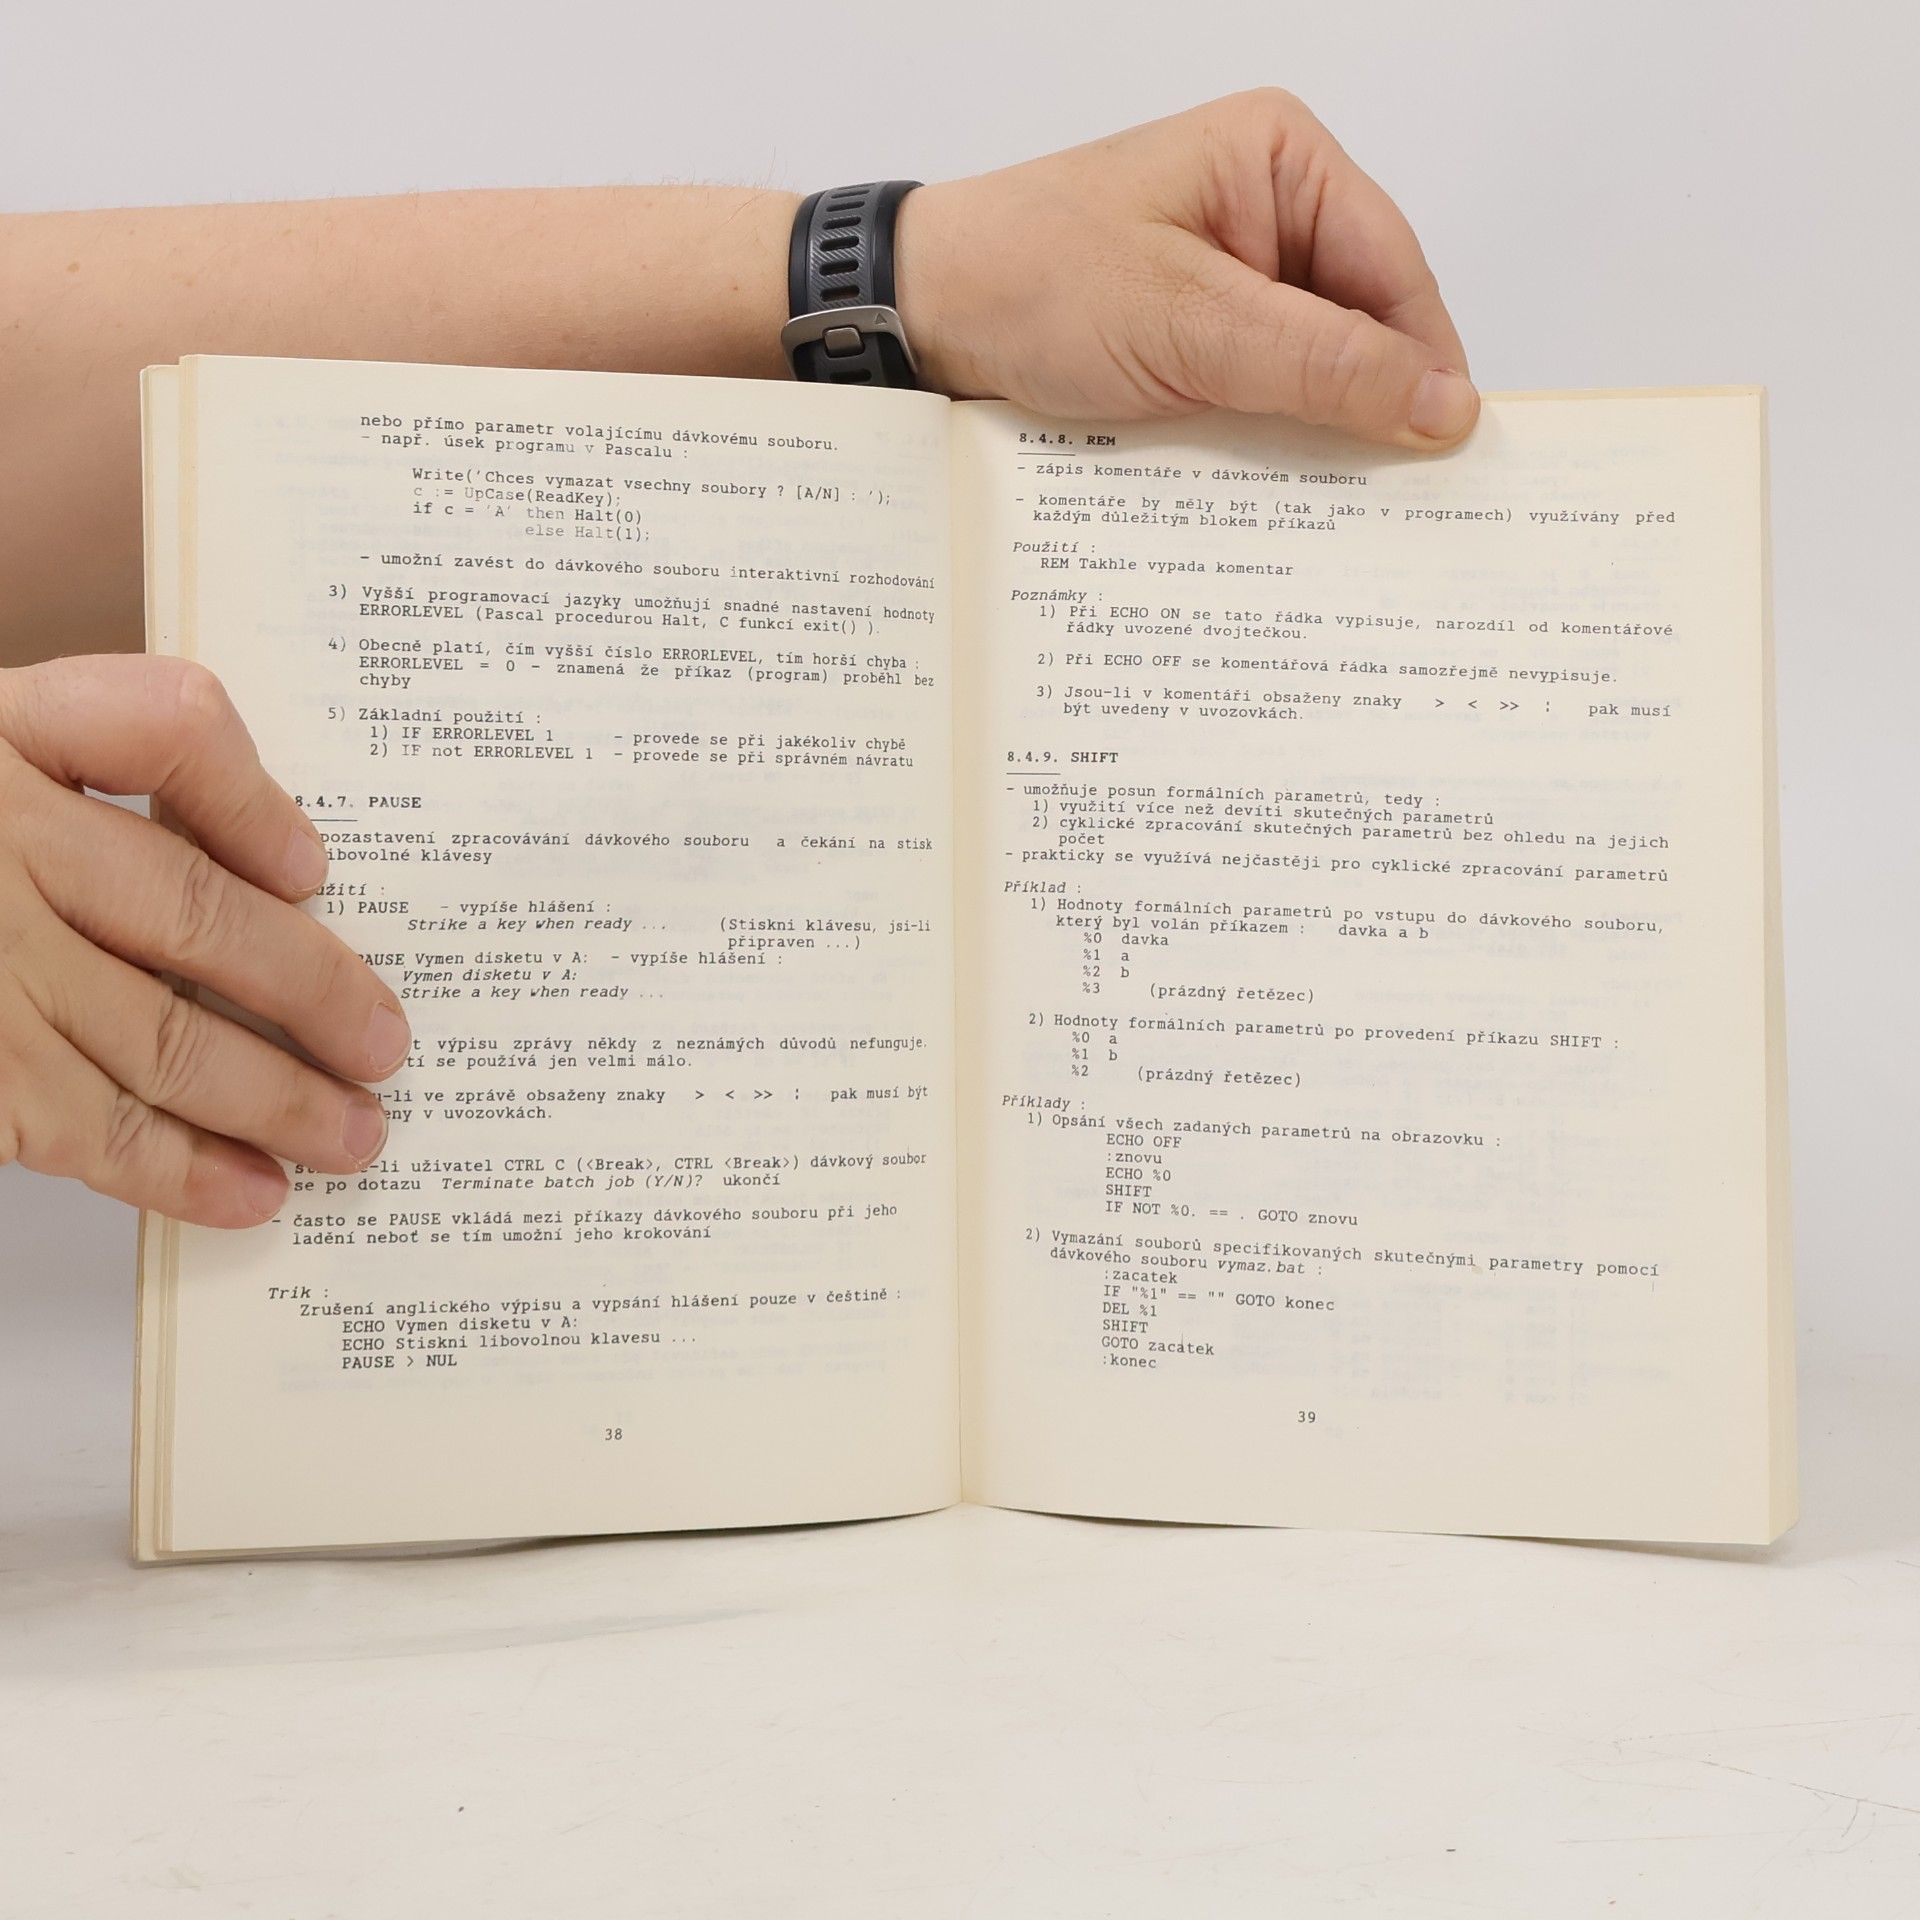 nebo přímo parametr volajícímu dávkovému souboru.
- např. úsek programu v Pascalu :
Write('Chces vymazat vsechny soubory ? [A/N] : ');
c := UpCase(ReadKey);
if c = 'A' then Halt(0)
else Halt(1);
- umožní zavést do dávkového souboru interaktivní rozhodování
3) Vyšší programovací jazyky umožňují snadné nastavení hodnoty
ERRORLEVEL (Pascal procedurou Halt, C funkcí exit() ).
4) Obecně platí, čím vyšší číslo ERRORLEVEL, tím horší chyba :
ERRORLEVEL = 0 - znamená že příkaz (program) proběhl bez
chyby
5) Základní použití :
1) IF ERRORLEVEL 1 - provede se při jakékoliv chybě
2) IF not ERRORLEVEL 1 - provede se při správném návratu
8.4.7. PAUSE
pozastavení zpracovávání dávkového souboru a čekání na stisk
ibovolné klávesy
užití :
1) PAUSE - vypíše hlášení :
Strike a key when ready ... (Stiskni klávesu, jsi-li
připraven ...)
PAUSE Vymen disketu v A: - vypíše hlášení :
Vymen disketu v A:
Strike a key when ready ...
t výpisu zprávy někdy z neznámých důvodů nefunguje,
tí se používá jen velmi málo.
u-li ve zprávě obsaženy znaky > < >> ¦ pak musí být
eny v uvozovkách.
-li uživatel CTRL C (<Break>, CTRL <Break>) dávkový soubor
se po dotazu Terminate batch job (Y/N)? ukončí
- často se PAUSE vkládá mezi příkazy dávkového souboru při jeho
ladění neboť se tím umožní jeho krokování
Trik :
Zrušení anglického výpisu a vypsání hlášení pouze v češtině :
ECHO Vymen disketu v A:
ECHO Stiskni libovolnou klavesu ...
PAUSE > NUL
38
8.4.8. REM
- zápis komentáře v dávkovém souboru
- komentáře by měly být (tak jako v programech) využívány před
každým důležitým blokem příkazů
Použití :
REM Takhle vypada komentar
Poznámky :
1) Při ECHO ON se tato řádka vypisuje, narozdíl od komentářové
řádky uvozené dvojtečkou.
2) Při ECHO OFF se komentářová řádka samozřejmě nevypisuje.
3) Jsou-li v komentáři obsaženy znaky > < >> ¦ pak musí
být uvedeny v uvozovkách.
8.4.9. SHIFT
- umožňuje posun formálních parametrů, tedy :
1) využití více než devíti skutečných parametrů
2) cyklické zpracování skutečných parametrů bez ohledu na jejich
počet
- prakticky se využívá nejčastěji pro cyklické zpracování parametrů
Příklad :
1) Hodnoty formálních parametrů po vstupu do dávkového souboru,
který byl volán příkazem : davka a b
%0 davka
%1 a
%2 b
%3 (prázdný řetězec)
2) Hodnoty formálních parametrů po provedení příkazu SHIFT :
%0 a
%1 b
%2 (prázdný řetězec)
Příklady :
1) Opsání všech zadaných parametrů na obrazovku :
ECHO OFF
:znovu
ECHO %0
SHIFT
IF NOT %0. == . GOTO znovu
2) Vymazání souborů specifikovaných skutečnými parametry pomocí
dávkového souboru vymaz.bat :
:zacatek
IF "%1" == "" GOTO konec
DEL %1
SHIFT
GOTO zacatek
:konec
39